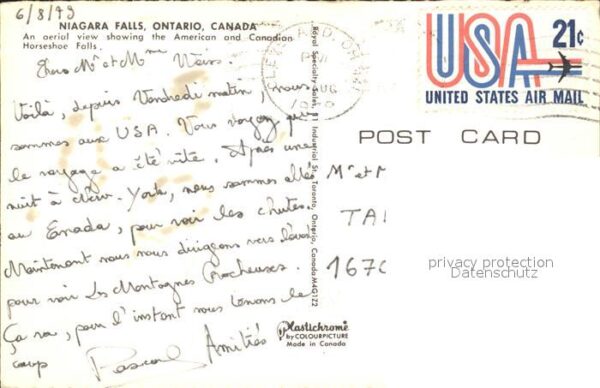 6/8/79
NIAGARA FALLS, ONTARIO, CANADA
An aerial view showing the American and Canadian
Horseshoe Falls.
Chers Mr et Mme Weiss.
Voilà, depuis Vendredi matin, nous
sommes aux USA. Vous voyez que
le voyage a été vite. Après une
nuit à New-York, nous sommes allés
au Canada, pour voir les chutes.
Maintenant nous nous dirigeons vers l'ouest
pour voir Les Montagnes Rocheuses.
Ça va, pour l'instant nous tenons le
coup
Amitiés
Pascal
Royal Specialty Sales, 81 Industrial St., Toronto, Ontario, Canada M4G1Z2
Plastichrome
by COLOURPICTURE
Made in Canada
PM
AUG
USA 21c
UNITED STATES AIR MAIL
POST CARD
Mr et M
TA
167
privacy protection
Datenschutz